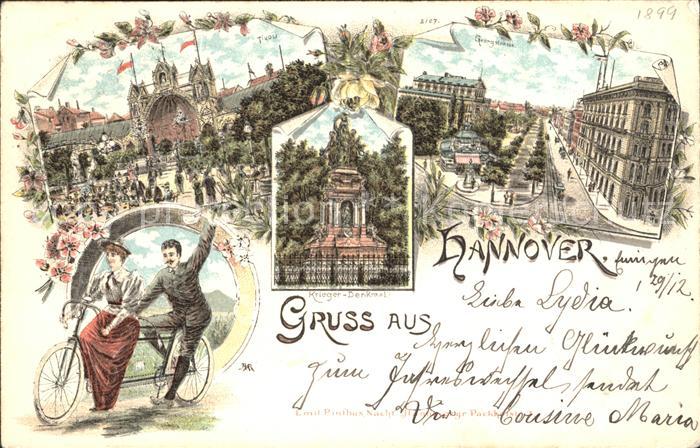 1899
2107.
Tivoli
Georgstrasse
Krieger-Denkmal
HANNOVER,
29/12
GRUSS AUS
Liebe Lydia.
Herzlichen Glückwunsch
zum Jahreswechsel sendet
Cousine Maria
Emil Pinthus Nachf.